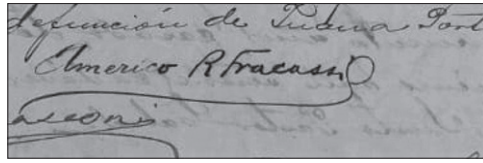 defunción de Juana Port
Americo R Fracassi